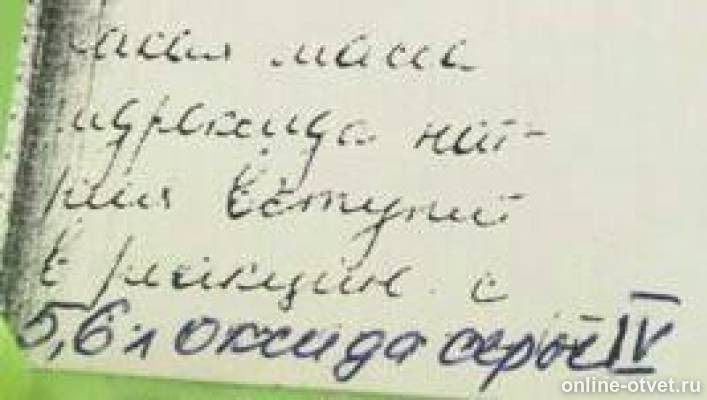 какая масса
гидроксида нат-
рия вступит
в реакцию с
5,6 л оксида серы IV
online-otvet.ru